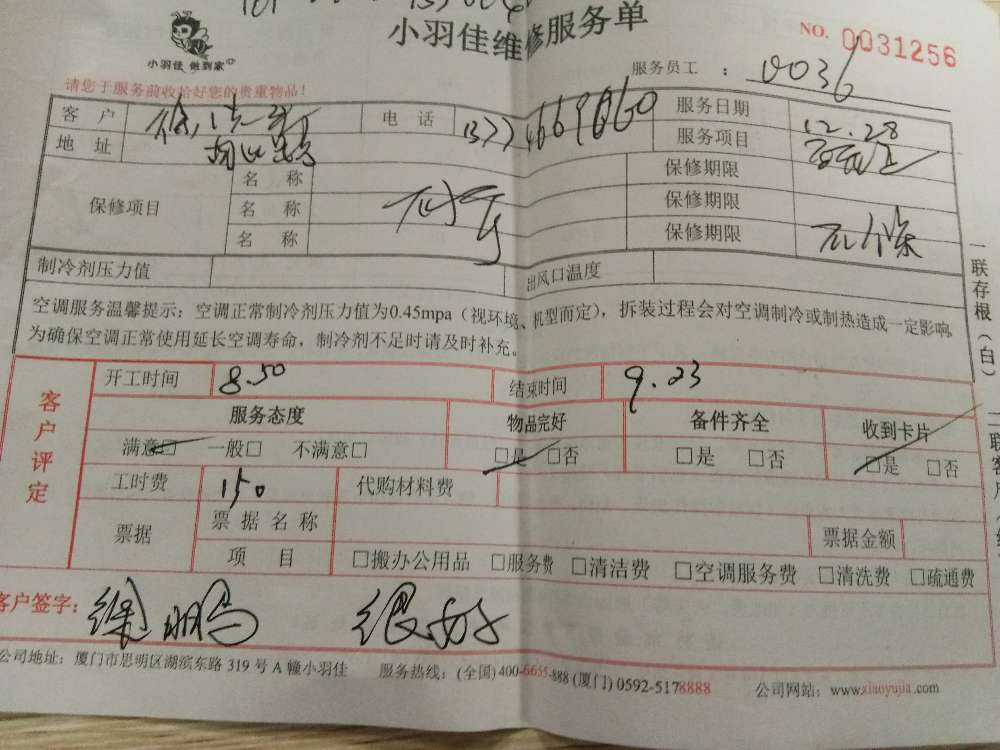 小羽佳维修服务单
NO. 0031256
小羽佳 做到家
服务员工 ： 0036
请您于服务前收拾好您的贵重物品！
客户 电话 服务日期 12.28
地址 服务项目
保修项目 名称 保修期限
名称 保修期限
名称 保修期限
制冷剂压力值 出风口温度
空调服务温馨提示：空调正常制冷剂压力值为0.45mpa（视环境、机型而定），拆装过程会对空调制冷或制热造成一定影响
为确保空调正常使用延长空调寿命，制冷剂不足时请及时补充。
一联存根（白）
客户评定
开工时间 8.50 结束时间 9.23
服务态度 物品完好 备件齐全 收到卡片
满意□ 一般□ 不满意□ □是 □否 □是 □否 □是 □否
工时费 150 代购材料费
票据 票据名称 票据金额
项目 □搬办公用品 □服务费 □清洁费 □空调服务费 □清洗费 □疏通费
客户签字： 很好
公司地址：厦门市思明区湖滨东路 319 号 A 幢小羽佳 服务热线：(全国) 400-6655-888 (厦门) 0592-5178888 公司网站：www.xiaoyujia.com